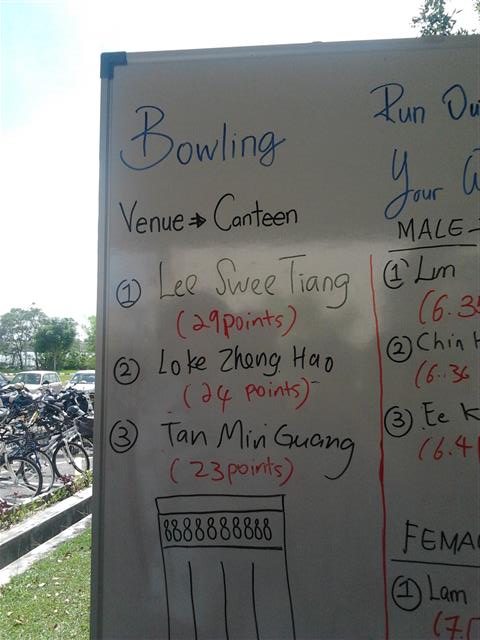 Bowling
Venue → Canteen
① Lee Swee Tiang
(29points)
② Loke Zheng Hao
(24 points)
③ Tan Min Guang
(23points)
Run Ou
Your
MALE
① Lim
(6.35
② Chin
(6.36
③ Ee K
(6.41
FEMA
① Lam